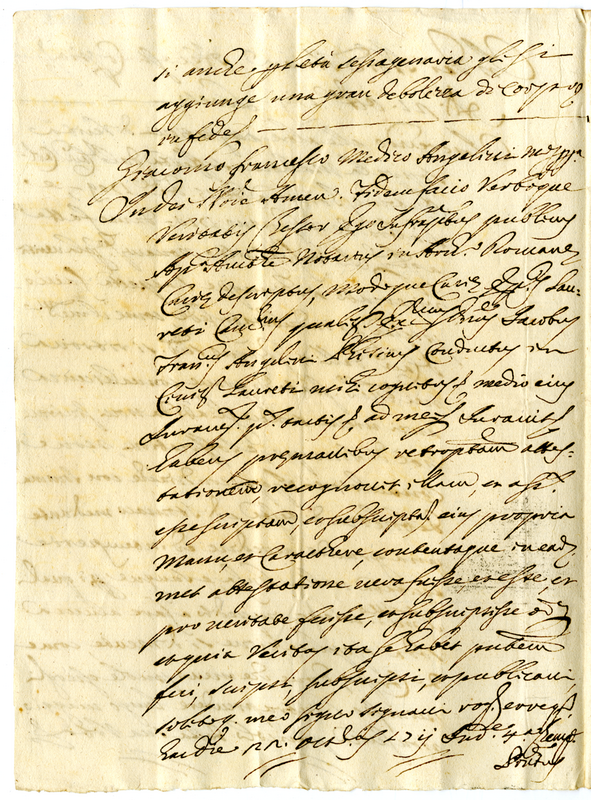 si anche p l'età sessagenaria gli si
aggiunge una gran debolezza di Corpo
in fede
Giacomo Francesco Medico Angelini
In Dei Noie Amen. Fidem facio Verboque
Veritatis testor Ego Infrasctus publicus
Aplica Aucte Notarius in Arch. Romanae
Curiae descriptus, Modoque Curiae Lau-
reti Canc.rius qualiter Jacobus
Fran.cus Angelini Phisicus Conductus in
Civit. Laureti mihi cognitus medio eius
Juram. tactis, ad me Juravit
habens prae manibus retroptam attes-
tationem recognovit illam, et
esse scriptam et subscriptam eius propria
Manu et Caractere, contentaque in ead
met attestatione vera fuisse, et esse, et
pro veritate fecisse, et subscripsisse
et quia Veritas ita se habet putem
feci, scripsi, subscripsi, et publicavi,
solitoq. meo signo signavi rog.
hac die 22 Octob. Ind.e 4a